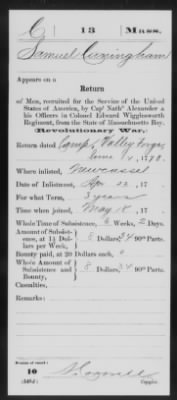 C | 13 | Mass.
Samuel Cuningham
Appears on a
Return
of Men, recruited for the Service of the United
States of America, by Capt Nath'l Alexander &
his Officers in Colonel Edward Wigglesworth
Regiment, from the State of Massachusetts Bay.
(Revolutionary War.)
Return dated Camp, Valley Forge,
June 1, 1778.
Where inlisted, Newcassel
Date of Inlistment, Apr 22, 17
For what Term, 3 years
Time when joined, May 18, 17
Whole Time of Subsistence, 6 Weeks, 2 Days.
Amount of Subsist-
ence, at 1⅓ Dol-
lars per Week, 8 Dollars; 34 90th Parts.
Bounty paid, at 20 Dollars each,
Whole Amount of
Subsistence and
Bounty, 8 Dollars; 34 90th Parts.
Casualties,
Remarks:
10
Copyist.